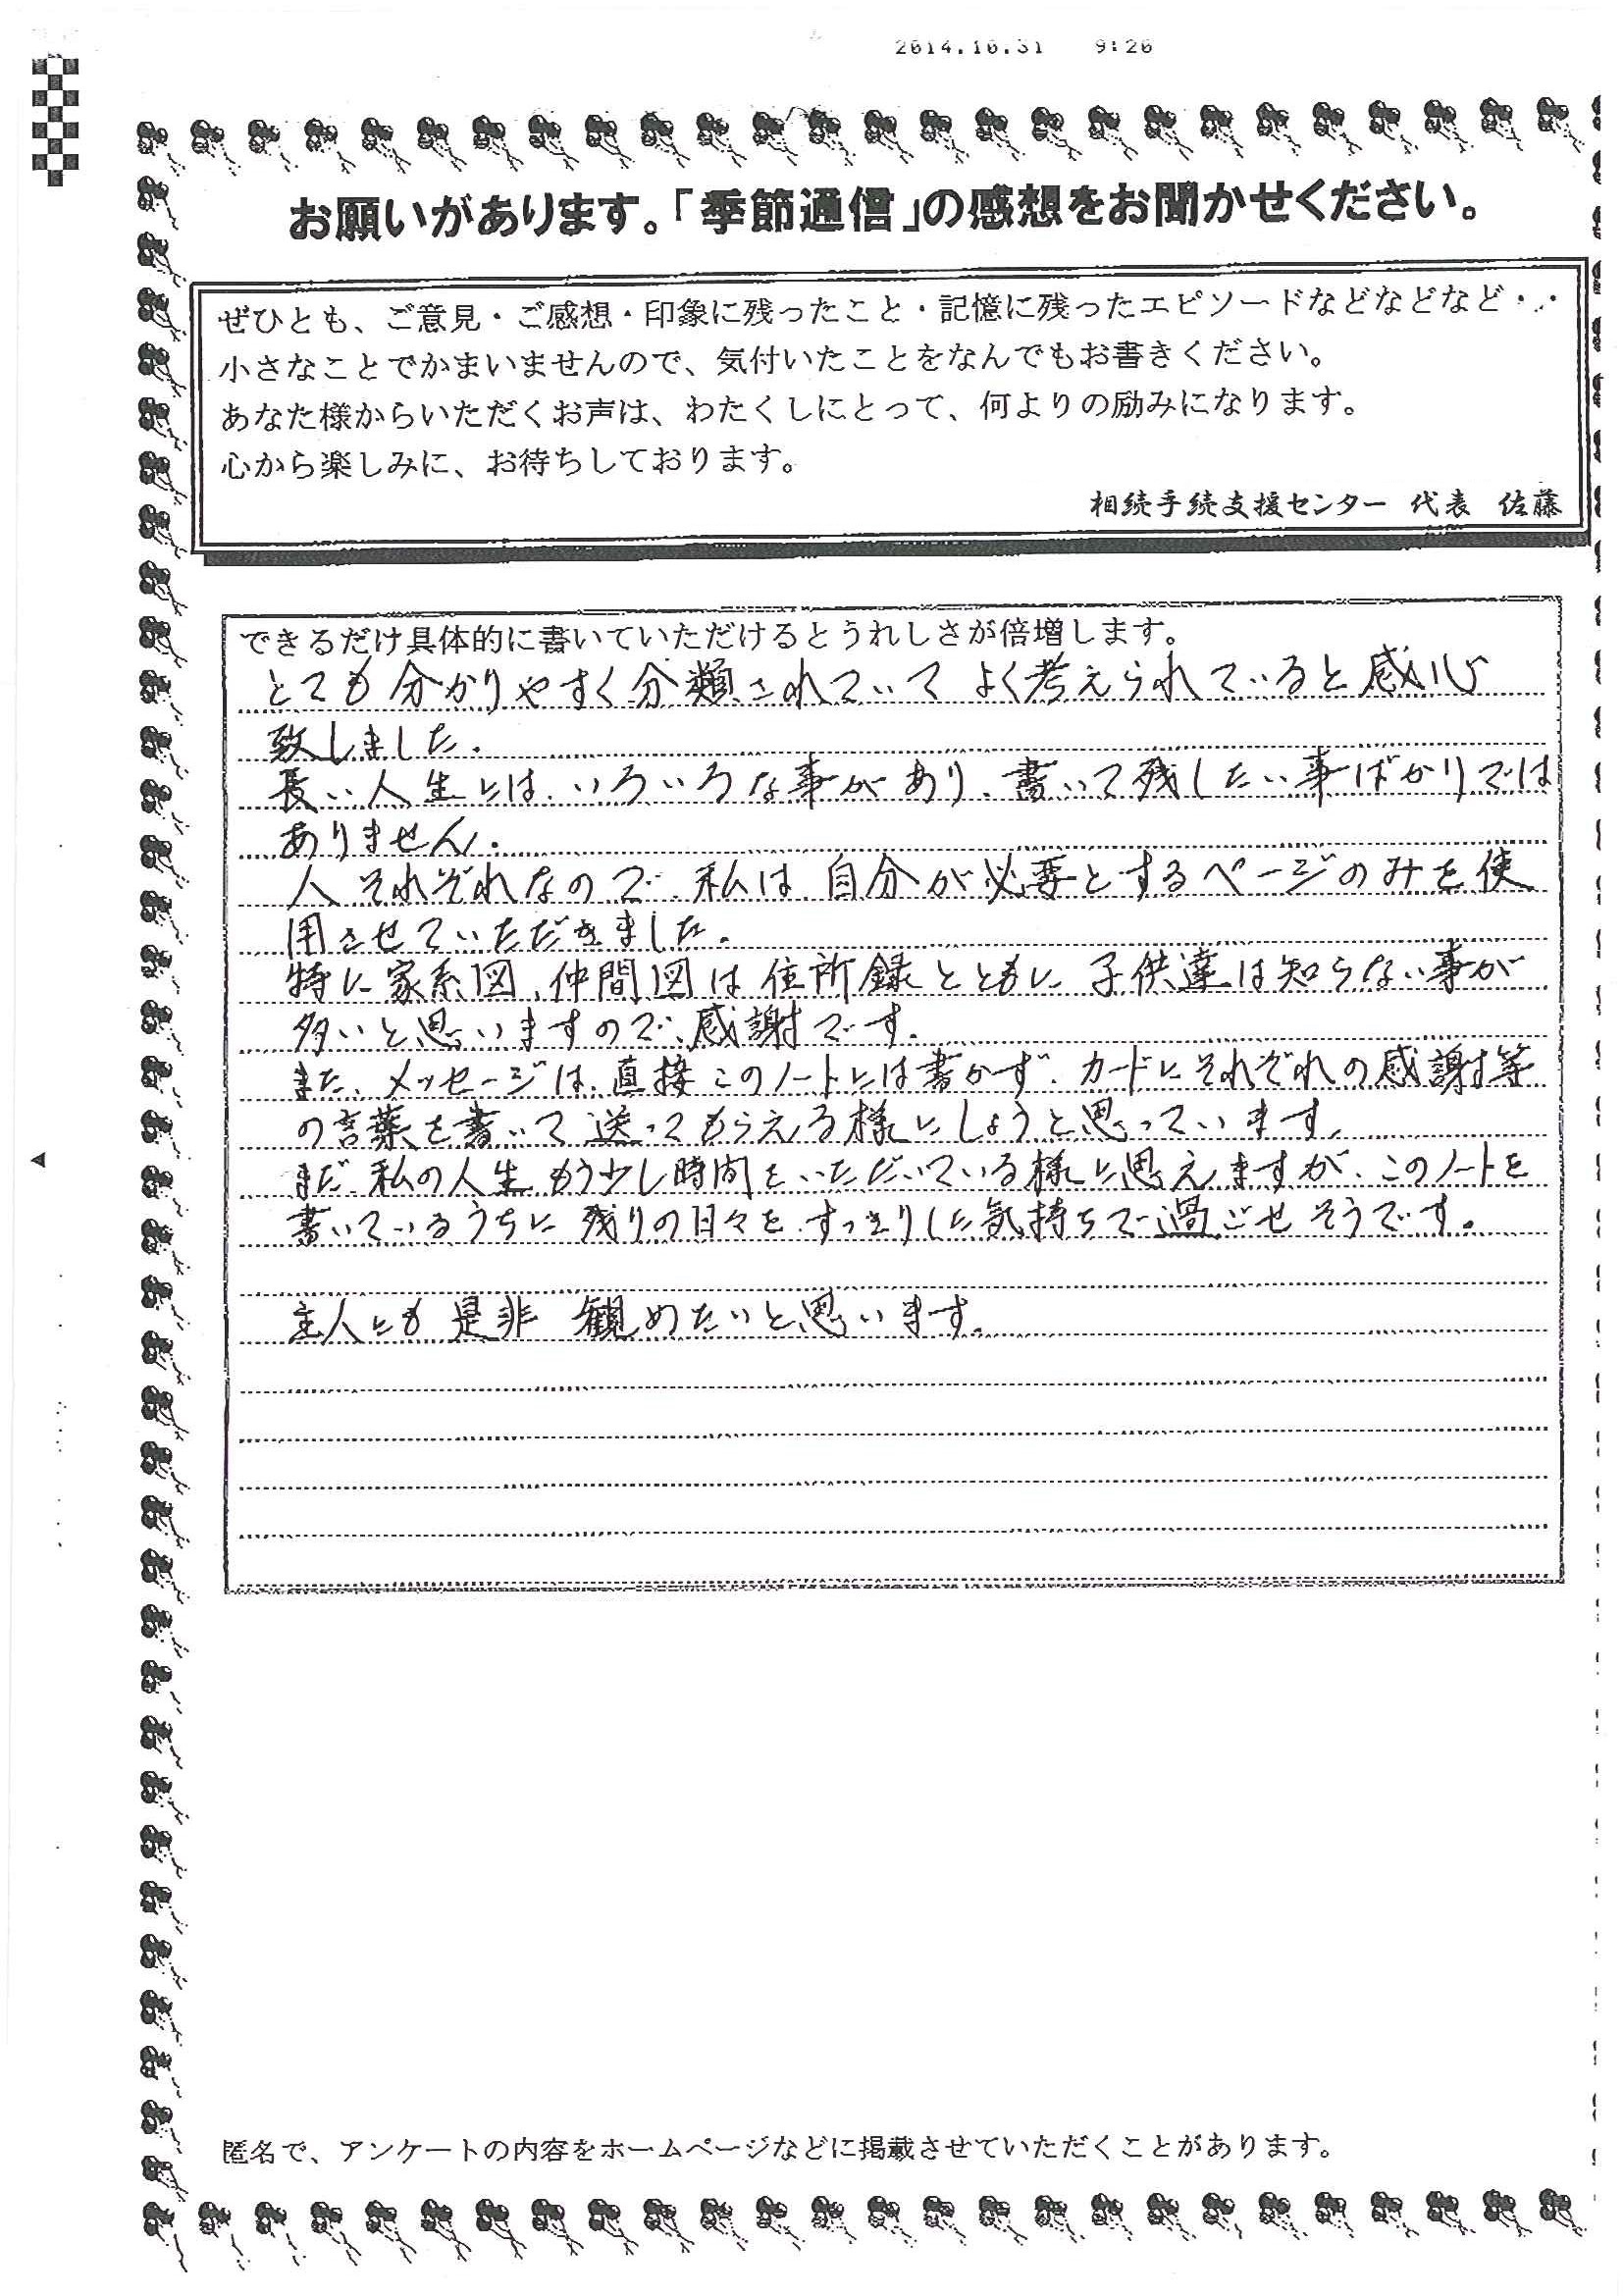 2014.10.31 9:26
お願いがあります。「季節通信」の感想をお聞かせください。
ぜひとも、ご意見・ご感想・印象に残ったこと・記憶に残ったエピソードなどなどなど・・
小さなことでかまいませんので、気付いたことをなんでもお書きください。
あなた様からいただくお声は、わたくしにとって、何よりの励みになります。
心から楽しみに、お待ちしております。
相続手続支援センター 代表 佐藤
できるだけ具体的に書いていただけるとうれしさが倍増します。
とても分かりやすく分類されていてよく考えられていると感心
致しました。
長い人生には、いろいろな事があり、書いて残したい事ばかりでは
ありません。
人それぞれなので、私は自分が必要とするページのみを使
用させていただきました。
特に家系図、仲間図は住所録とともに子供達は知らない事が
多いと思いますので、感謝です。
また、メッセージは、直接このノートには書かず、カードにそれぞれの感謝等
の言葉を書いて送ってもらえる様にしようと思っています。
まだ私の人生もう少し時間をいただいている様に思えますが、このノートを
書いているうちに残りの日々を、すっきりした気持ちで過ごせそうです。
主人にも是非 観めたいと思います。
匿名で、アンケートの内容をホームページなどに掲載させていただくことがあります。